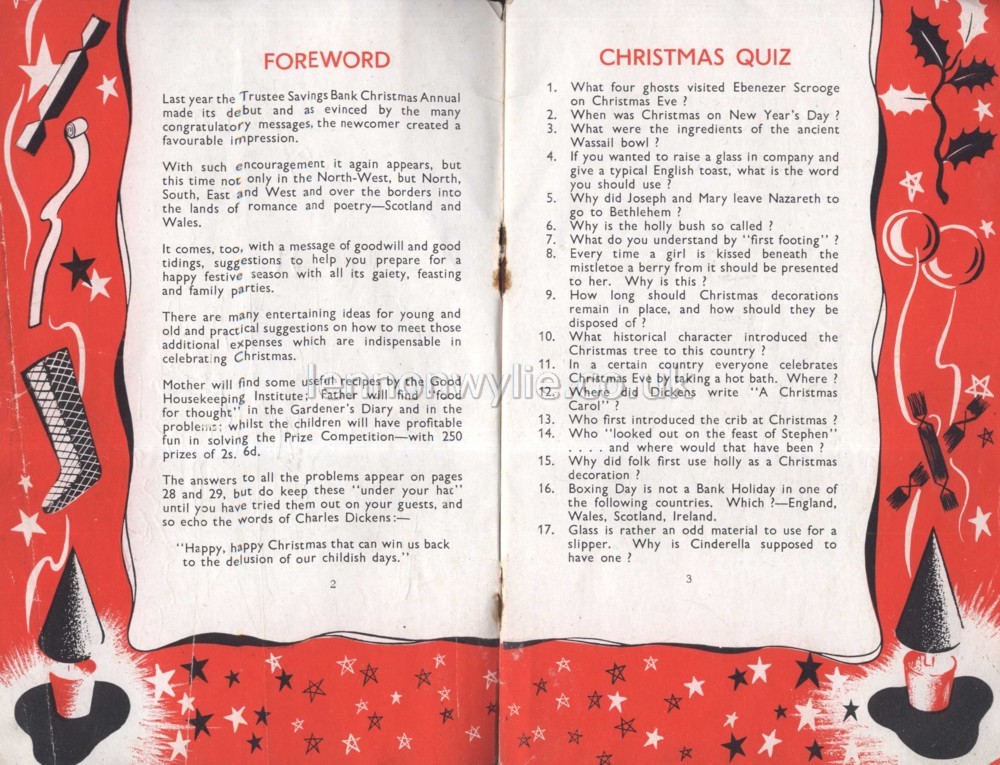 FOREWORD
Last year the Trustee Savings Bank Christmas Annual
made its debut and as evinced by the many
congratulatory messages, the newcomer created a
favourable impression.
With such encouragement it again appears, but
this time not only in the North-West, but North,
South, East and West and over the borders into
the lands of romance and poetry—Scotland and
Wales.
It comes, too, with a message of goodwill and good
tidings, suggestions to help you prepare for a
happy festive season with all its gaiety, feasting
and family parties.
There are many entertaining ideas for young and
old and practical suggestions on how to meet those
additional expenses which are indispensable in
celebrating Christmas.
Mother will find some useful recipes by the Good
Housekeeping Institute; Father will find "food
for thought" in the Gardener's Diary and in the
problems; whilst the children will have profitable
fun in solving the Prize Competition—with 250
prizes of 2s. 6d.
The answers to all the problems appear on pages
28 and 29, but do keep these "under your hat"
until you have tried them out on your guests, and
so echo the words of Charles Dickens:—
"Happy, happy Christmas that can win us back
to the delusion of our childish days."
2
CHRISTMAS QUIZ
1. What four ghosts visited Ebenezer Scrooge
on Christmas Eve ?
2. When was Christmas on New Year's Day ?
3. What were the ingredients of the ancient
Wassail bowl ?
4. If you wanted to raise a glass in company and
give a typical English toast, what is the word
you should use ?
5. Why did Joseph and Mary leave Nazareth to
go to Bethlehem ?
6. Why is the holly bush so called ?
7. What do you understand by "first footing" ?
8. Every time a girl is kissed beneath the
mistletoe a berry from it should be presented
to her. Why is this ?
9. How long should Christmas decorations
remain in place, and how should they be
disposed of ?
10. What historical character introduced the
Christmas tree to this country ?
11. In a certain country everyone celebrates
Christmas Eve by taking a hot bath. Where ?
12. Where did Dickens write "A Christmas
Carol" ?
13. Who first introduced the crib at Christmas ?
14. Who "looked out on the feast of Stephen"
. . . . and where would that have been ?
15. Why did folk first use holly as a Christmas
decoration ?
16. Boxing Day is not a Bank Holiday in one of
the following countries. Which ?—England,
Wales, Scotland, Ireland.
17. Glass is rather an odd material to use for a
slipper. Why is Cinderella supposed to
have one ?
3
lennonwylie.co.uk